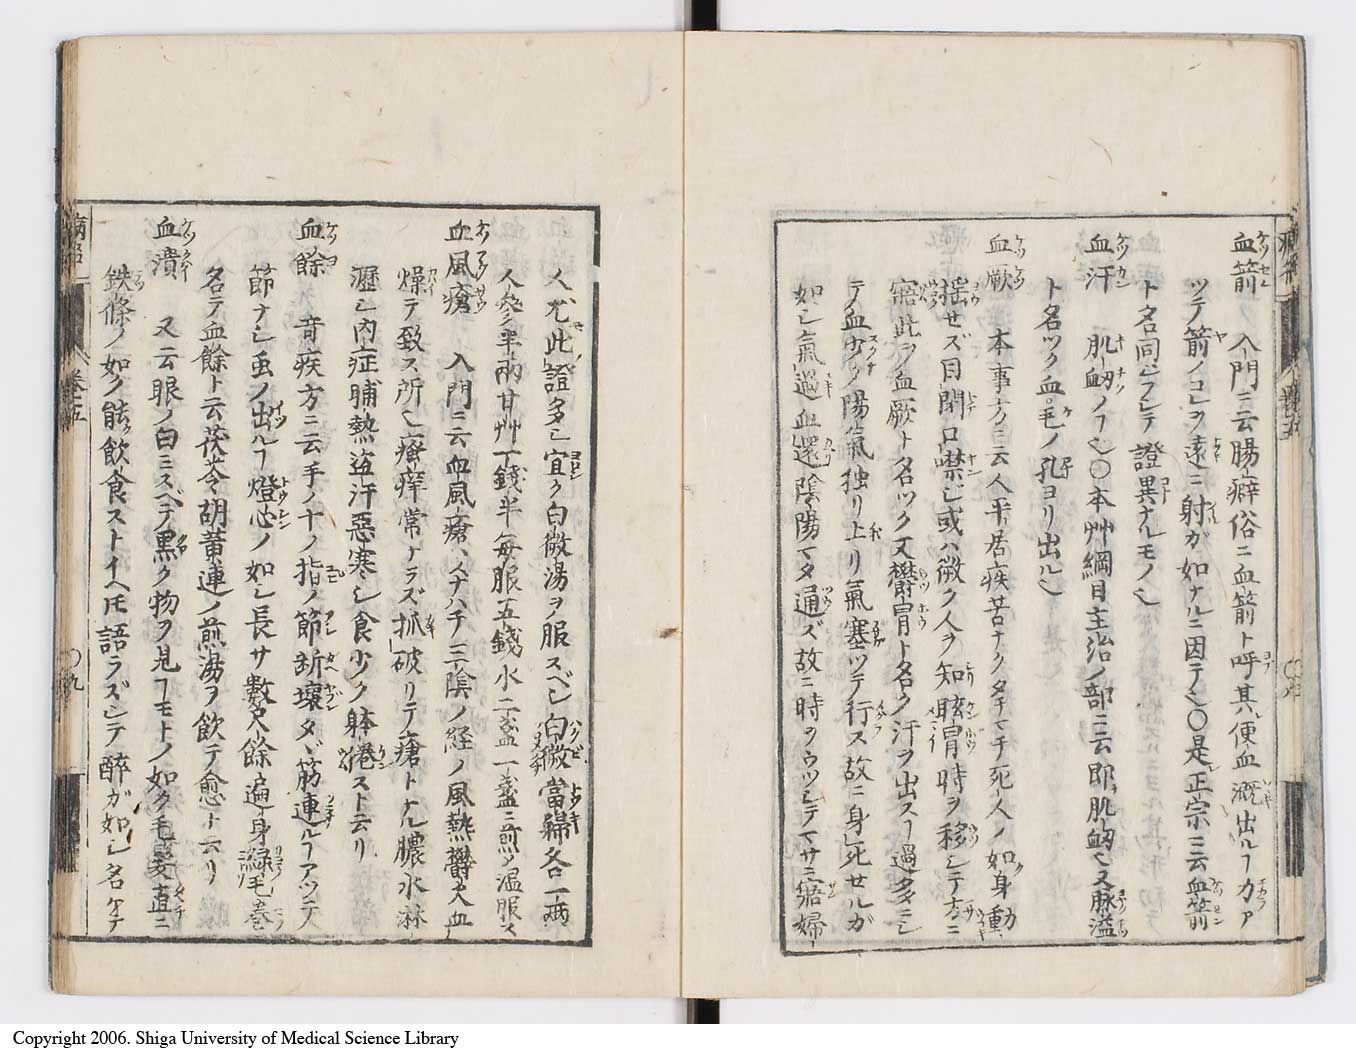 血箭 入門ニ云腸癖俗ニ血箭ト呼其便血溉出ルヿカアツテ
箭ノコトヲ遠ニ射ガ如ナルニ因テ也〇是正宗ニ云血箭
ト名同シテ證異ナルモノ也
血汗 肌衂ノヿ也〇本艸綱目主治ノ部ニ云即肌衂也又脉溢
ト名ツク血毛ノ孔ヨリ出ル也
血厥 本事方ニ云人平居疾苦ナクタチマチ死人ノ如身動
揺せズ目閉口噤シ或ハ微ク人ヲ知眩冐時ヲ移シテ方ニ
寤此ヲ血厥ト名ツク又欝冒ト名ク汗ヲ出スヿ過多ニシ
テ血少ク陽氣独リ上リ氣塞ツテ行ス故ニ身死せルガ
如シ氣過血還陰陽マタ通ズ故ニ時ヲウツシテマサニ寤婦
人尤此證多シ宜ク白薇湯ヲ服スベシ白薇當歸各一両
人参半両甘艸一錢半毎服五錢水二盞一盞ニ煎〆温服ス
血風瘡 入門ニ云血風瘡ハスナハチ三陰ノ経ノ風熱欝火血
燥テ致ス所也瘙痒常ナラズ抓破リテ瘡トナル膿水淋
瀝シ内症晡熱盗汗惡寒シ食少ク躰倦スト云リ
血餘 竒疾方ニ云手ノ十ノ指ノ節断壊タヾ筋連ルヿアツテ
節ナシ虫ノ出ルヿ燈心ノ如シ長サ數尺餘遍身緑毛巻
名テ血餘ト云茯苓胡黄連ノ煎湯ヲ飲テ愈ト云リ
血潰 又云眼ノ白ミスベテ黒ク物ヲ見ヿモトノ如ク毛髪直ニ
鉄條ノ如ク能飲食ストイヘ𪜈語ラズシテ醉ガ如シ名ケテ
巻五
〇九